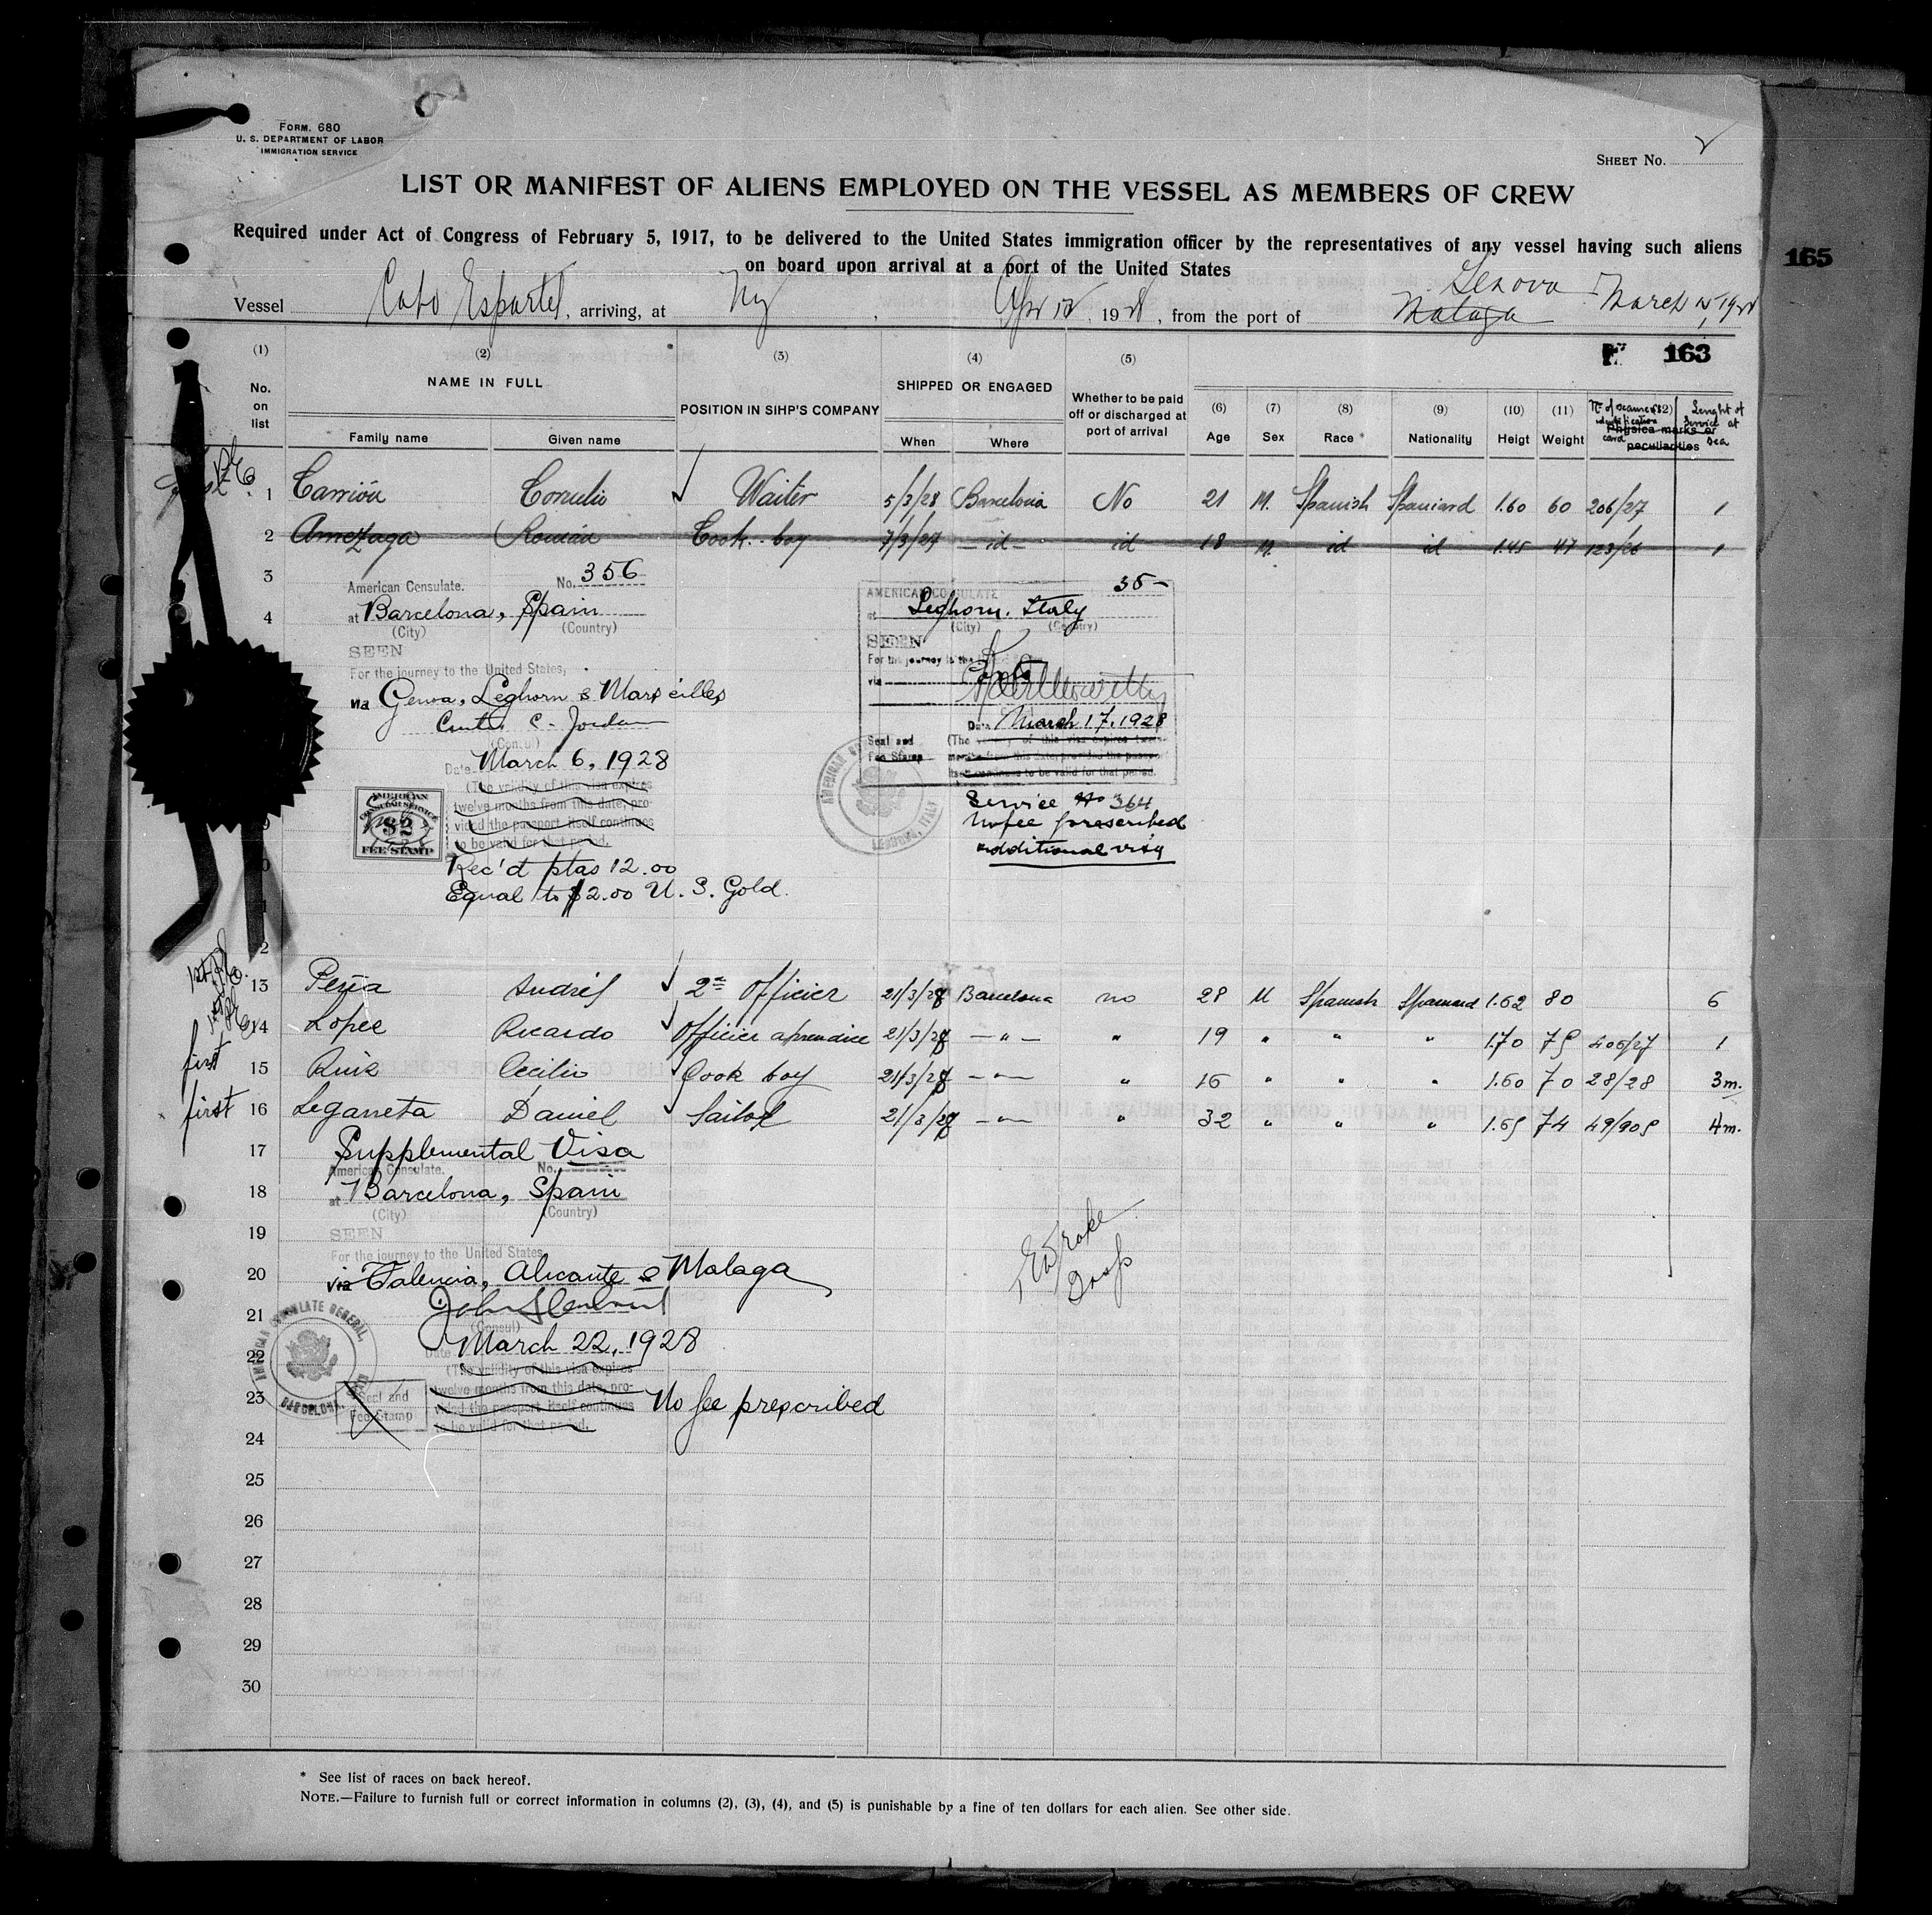 FORM. 680
U. S. DEPARTMENT OF LABOR
IMMIGRATION SERVICE
SHEET No.
LIST OR MANIFEST OF ALIENS EMPLOYED ON THE VESSEL AS MEMBERS OF CREW
Required under Act of Congress of February 5, 1917, to be delivered to the United States immigration officer by the representatives of any vessel having such aliens
on board upon arrival at a port of the United States
165
Vessel Cabo Espartel, arriving, at Ny, Apr 12, 1928, from the port of Malaga Genova March 15, 1928
163
(1) No. on list
(2) NAME IN FULL
Family name Given name
(3) POSITION IN SIHP'S COMPANY
(4) SHIPPED OR ENGAGED
When Where
(5) Whether to be paid off or discharged at port of arrival
(6) Age
(7) Sex
(8) Race *
(9) Nationality
(10) Heigt
(11) Weight
(12) Physica marks or peculiacties
Nº of seamen's identification card
Lenght of service at sea
1 Carrión Cornelio Waiter 5/3/28 Barcelona No 21 M. Spanish Spaniard 1.60 60 206/27 1
2 Amezaga Román Cook boy 7/3/28 id id 18 M. id id 1.45 47 123/26 1
3
4
American Consulate. No. 356
at Barcelona, Spain
(City) (Country)
SEEN
For the journey to the United States,
via Genoa, Leghorn & Marseilles
Curtis C. Jordan
(Consul)
Date March 6, 1928
(The validity of this visa expires
twelve months from this date, pro-
vided the passport itself continues
to be valid for that period.
AMERICAN
CONSULAR SERVICE
$2
FEE STAMP
Rec'd ptas 12.00
Equal to $2.00 U. S. Gold.
AMERICAN CONSULATE 35-
at Leghorn. Italy
(City) (Country)
SEEN
For the journey to the
via
Date March 17. 1928
Seal and
Fee Stamp
(The validity of this visa expires twelve
months from this date, provided the passport
itself continues to be valid for that period.
Service No 364
No fee prescribed
additional visa
13 Peña Andrés 2nd Officier 21/3/28 Barcelona no 28 M Spanish Spaniard 1.62 80 6
14 Lopez Ricardo Officier aprendice 21/3/28 — " — " 19 " " " 1.70 75 406/27 1
first 15 Ruiz Cecilio Cook boy 21/3/28 — " — " 16 " " " 1.60 70 28/28 3m.
first 16 Legarreta Daniel Sailor 21/3/28 — " — " 32 " " " 1.65 74 49/905 4m.
17
Supplemental Visa
American Consulate. No.
18
at Barcelona, Spain
(City) (Country)
19
SEEN
For the journey to the United States,
20
via Valencia, Alicante & Malaga
21
(Consul)
22
Date March 22, 1928
(The validity of this visa expires
23
twelve months from this date, pro-
vided the passport itself continues
to be valid for that period.
No fee prescribed
Seal and
Fee Stamp
AMERICAN CONSULATE GENERAL,
BARCELONA,
24
25
26
27
28
29
30
* See list of races on back hereof.
NOTE.—Failure to furnish full or correct information in columns (2), (3), (4), and (5) is punishable by a fine of ten dollars for each alien. See other side.